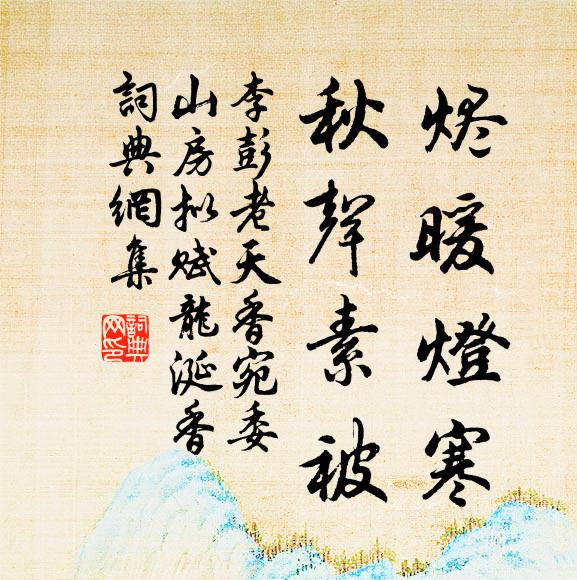 烬暖燈寒
秋聲素被
李彭老天香宛委
山房拟赋龍涎香
詞典網集
詞典
网印